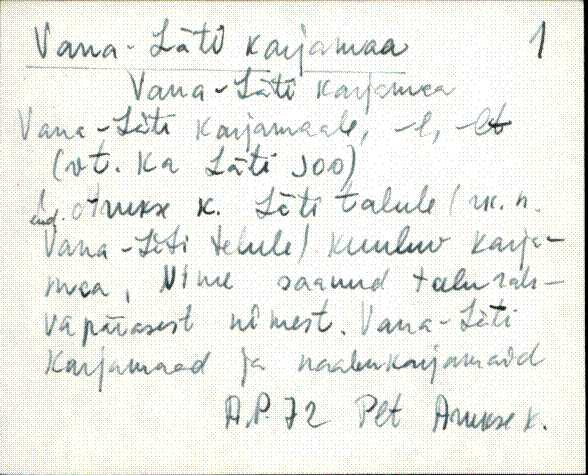 Vana-Läti karjamaa 1
Vana-Läti karjamaa
Vana-Läti karjamaale, -l, -lt
(vt. ka Läti soo)
End. Arukse k. Läti talule (rk. n.
Vana-Läti talule) kuuluv karja-
maa, Nime saanud talu rah-
vapärasest nimest. Vana-Läti
karjamaad ja naabrikarjamaid
A.P. 72 Plt Arukse k.